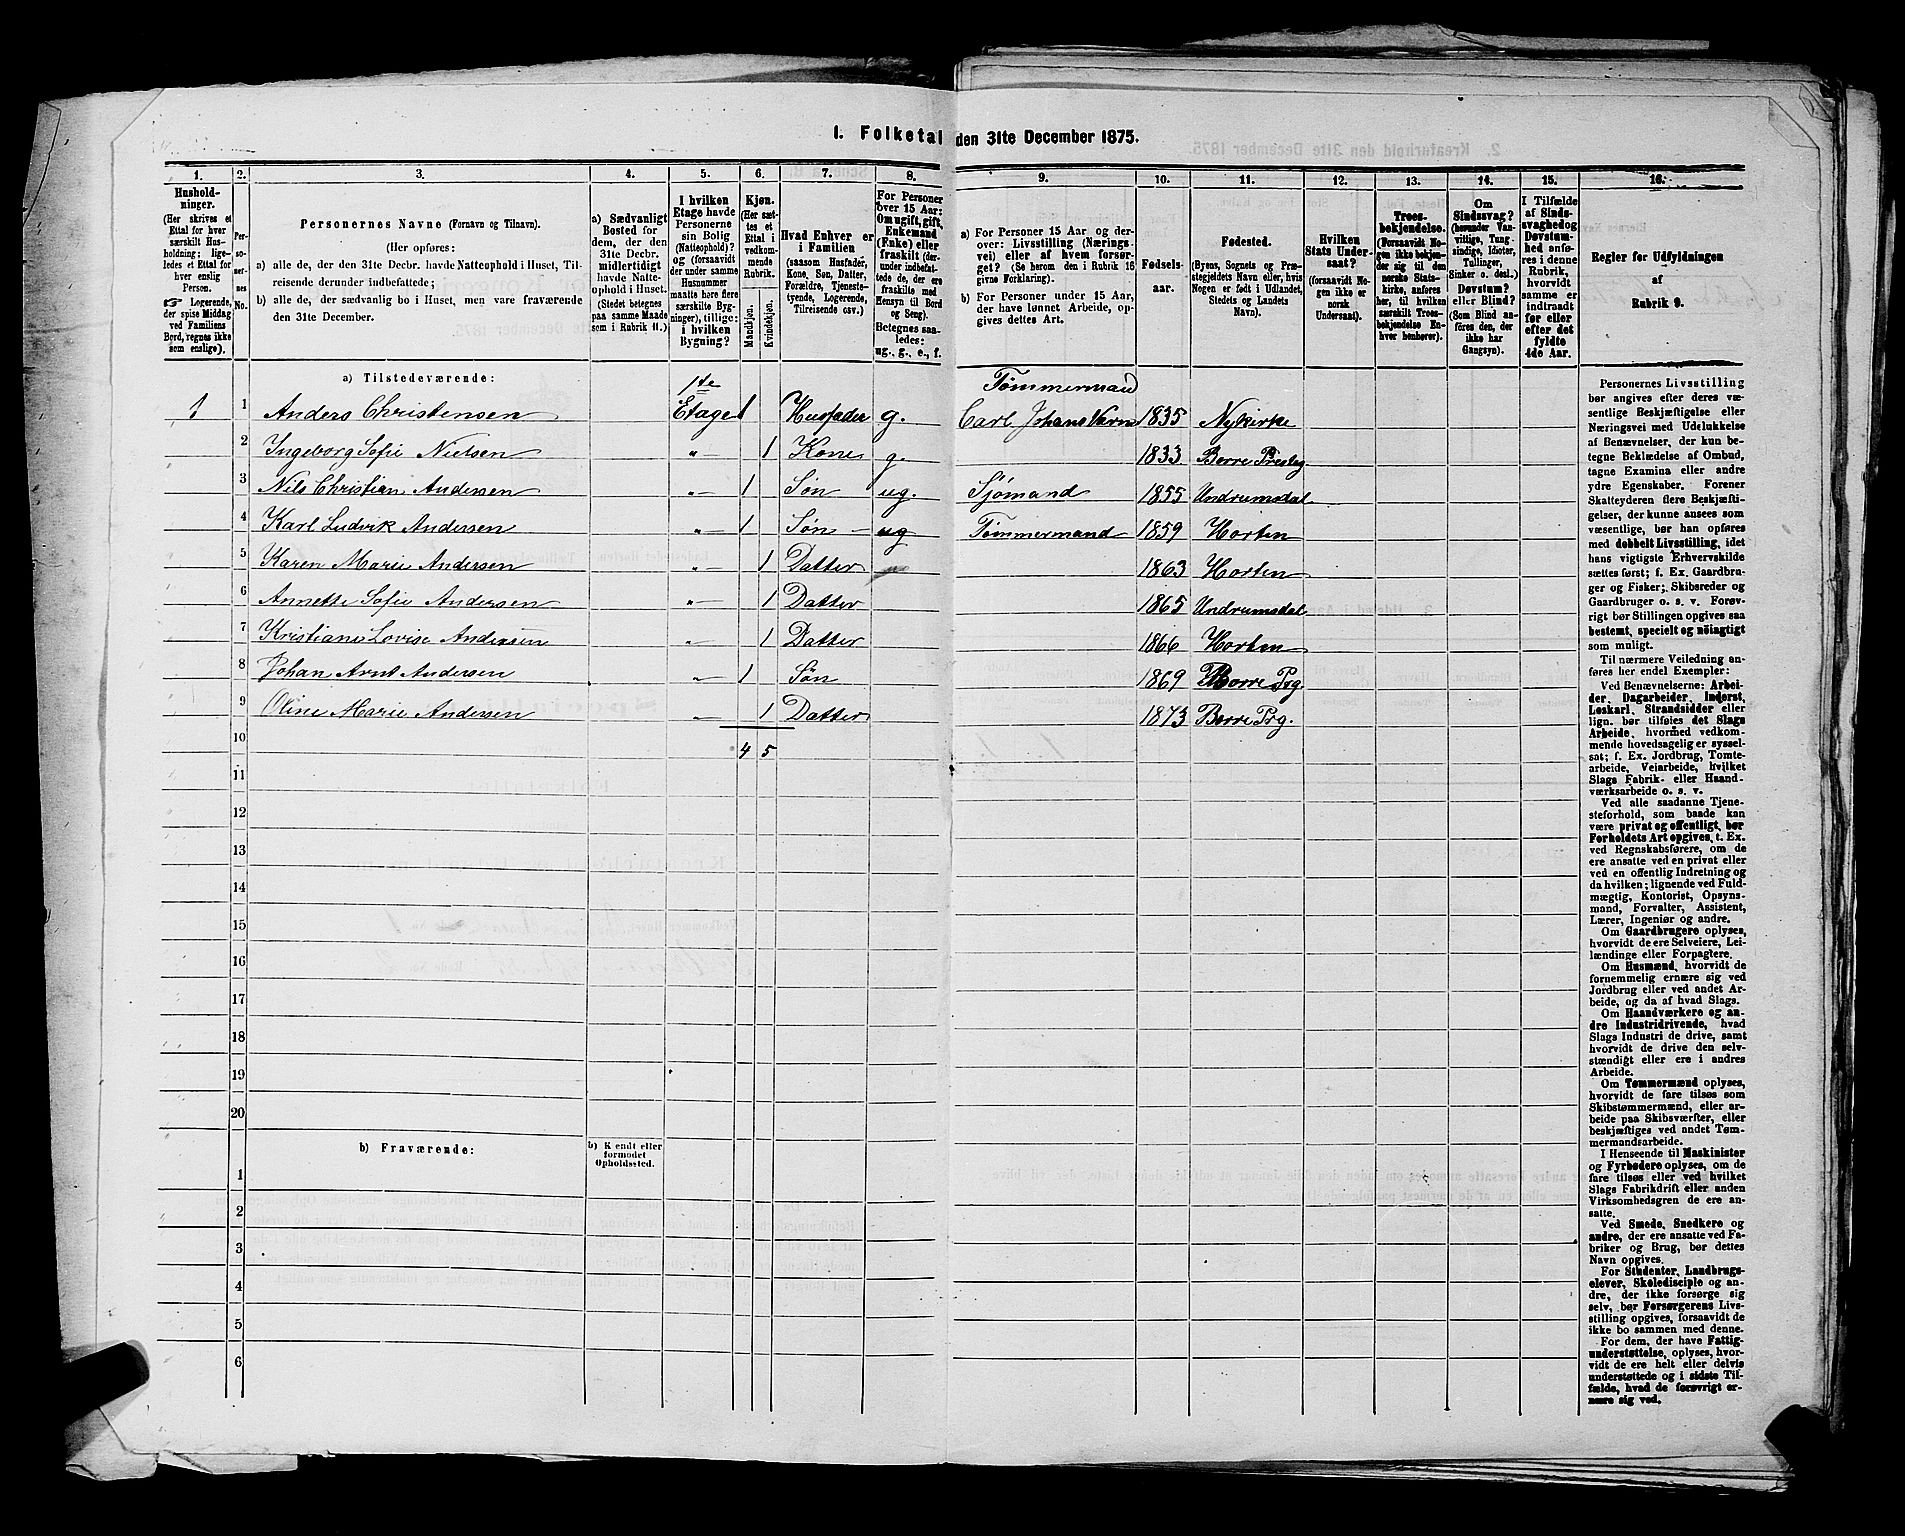 1. Folketal den 31te December 1875.
1. 2. 3. 4. 5. 6. 7. 8. 9. 10. 11. 12. 13. 14. 15. 16.
Hushold-
ninger.
(Her skrives et
Ettal for hver
særskilt Hus-
holdning; lige-
ledes et Ettal for
hver enslig
Person.
☞ Logerende,
der spise Middag
ved Familiens
Bord, regnes ikke
som enslige).
Per-
so-
ner-
nes
No.
Personernes Navne (Fornavn og Tilnavn).
(Her opføres:
a) alle de, der den 31te Decbr. havde Natteophold i Huset, Til-
reisende derunder indbefattede;
b) alle de, der sædvanlig bo i Huset, men vare fraværende
den 31te December.
a) Sædvanligt
Bosted for
dem, der den
31te Decbr.
midlertidigt
havde Natte-
ophold i Huset.
(Stedet betegnes
paa samme Maade
som i Rubrik 11.)
I hvilken
Etage havde
Personerne
sin Bolig
(Natteophold)?
og (forsaavidt
der under samme
Husnummer
maatte høre flere
særskilte Byg-
ninger), tillige:
i hvilken
Bygning?
Kjøn.
(Her sæt-
tes et
Ettal i
vedkom-
mende
Rubrik.
Mandkjøn.
Kvindekjøn.
Hvad Enhver er
i Familien
(saasom Husfader,
Kone, Søn, Datter,
Forældre, Tjeneste-
tyende, Logerende,
Tilreisende osv.)
For Personer
over 15 Aar:
Om ugift, gift,
Enkemand
(Enke) eller
fraskilt (her-
under indbefat-
tede de, der ere
fraskilte med
Hensyn til Bord
og Seng).
Betegnes saa-
ledes:
ug., g., e., f.
a) For Personer 15 Aar og der-
over: Livsstilling (Nærings-
vei) eller af hvem forsør-
get? (Se herom den i Rubrik 16
givne Forklaring).
b) For Personer under 15 Aar,
der have lønnet Arbeide, op-
gives dettes Art.
Fødsels-
aar.
Fødested.
(Byens, Sognets og Præ-
stegjeldets Navn eller, hvis
Nogen er født i Udlandet,
Stedets og Landets
Navn).
Hvilken
Stats Under-
saat?
(forsaavidt No-
gen ikke er
norsk
Undersaat).
Troes-
bekjendelse.
(Forsaavidt No-
gen ikke bekjen-
der sig til den
norske Stats-
kirke, anføres
her, til hvilken
særskilt Troes-
bekjendelse En-
hver henhører).
Om
Sindssvag?
(herunder Van-
vittige, Tung-
sindige, Idioter,
Tullinger,
Sinker o. desl.)
Døvstum?
eller Blind?
(Som Blind an-
føres den, der
ikke har
Gangsyn).
I Tilfælde
af Sinds-
svaghed og
Døvstum-
hed anfø-
res i denne
Rubrik,
hvorvidt
samme er
indtraadt
før eller
efter det
fyldte
4de Aar.
Regler for Udfyldningen
af
Rubrik 9.
a) Tilstedeværende:
1te Tømmermand
1 1 Anders Christensen Etage 1 Husfader g. Carl Johans Værn 1835 Nykirke
2 Ingeborg Sofie Nielsen " 1 Kone g. 1833 Borre Presteg
3 Nils Christian Andersen " 1 Søn ug. Sjømand 1855 Undrumsdal
4 Karl Ludvik Andersen " 1 Søn ug Tømmermand 1859 Horten
5 Karen Marie Andersen " 1 Datter 1863 Horten
6 Annette Sofie Andersen " 1 Datter 1865 Undrumsdal
7 Kristiane Lovise Andersen " 1 Datter 1866 Horten
8 Johan Arnt Andersen " 1 Søn 1869 Borre Prg.
9 Oline Marie Andersen " 1 Datter 1873 Borre Prg.
10 4 5
11
12
13
14
15
16
17
18
19
20
b) Fraværende:
b) Kjendt eller
formodet
Opholdssted.
1
2
3
4
5
6
Personernes Livsstilling
bør angives efter deres væ-
sentlige Beskjæftigelse eller
Næringsvei med Udelukkelse
af Benævnelser, der kun be-
tegne Beklædelse af Ombud,
tagne Examina eller andre
ydre Egenskaber. Forener
Skatteyderen flere Beskjæfti-
gelser, der kunne ansees som
væsentlige, bør han opføres
med dobbelt Livsstilling, idet
hans vigtigste Erhvervskilde
sættes først; f. Ex. Gaardbru-
ger og Fisker; Skibsreder og
Gaardbruger o. s. v. Forøv-
rigt bør Stillingen opgives saa
bestemt, specielt og nøiagtigt
som muligt.
Til nærmere Veiledning an-
føres her endel Exempler:
Ved Benævnelserne: Arbei-
der, Dagarbeider, Inderst,
Løskarl, Strandsidder eller
lign. bør tilføies det Slags
Arbeide, hvormed vedkom-
mende hovedsagelig er syssel-
sat; f. Ex. Jordbrug, Tomte-
arbeide, Veiarbeide, hvilket
Slags Fabrik- eller Haand-
værksarbeide o. s. v.
Ved alle saadanne Tjene-
steforhold, som baade kan
være privat og offentligt, bør
Forholdets Art opgives, f. Ex.
ved Regnskabsførere, om de
ere ansatte ved en privat eller
ved en offentlig Indretning og
da hvilken; lignende ved Fuld-
mægtig, Kontorist, Opsyns-
mand, Forvalter, Assistent,
Lærer, Ingeniør og andre.
Om Gaardbrugere oplyses,
hvorvidt de ere Selveiere, Lei-
lændinge eller Forpagtere.
Om Husmænd, hvorvidt de
fornemmelig ernære sig ved
Jordbrug eller ved andet Ar-
beide, og da af hvad Slags.
Om Haandværkere og an-
dre Industridrivende, hvad
Slags Industri de drive, samt
hvorvidt de drive den selv-
stændigt eller ere i andres
Arbeide.
Om Tømmermænd oplyses,
hvorvidt de fare tilsøs som
Skibstømmermænd, eller ar-
beide paa Skibsværfter, eller
beskjæftiges ved andet Tøm-
mermandsarbeide.
I Henseende til Maskinister
og Fyrbødere oplyses, om de
fare tilsøs eller ved hvilket
Slags Fabrikdrift eller anden
Virksomhedsgren de ere an-
satte.
Ved Smede, Snedkere og
andre, der ere ansatte ved Fa-
briker og Brug, bør dettes
Navn opgives.
For Studenter, Landbrugs-
elever, Skoledisciple og an-
dre, der ikke forsørge sig
selv, bør Forsørgerens Livs-
stilling opgives, forsaavidt de
ikke bo sammen med denne.
For dem, der have Fattig-
understøttelse, oplyses, hvor-
vidt de ere helt eller delvis
understøttede og i sidste Til-
fælde, hvad de forøvrigt er-
nære sig ved.